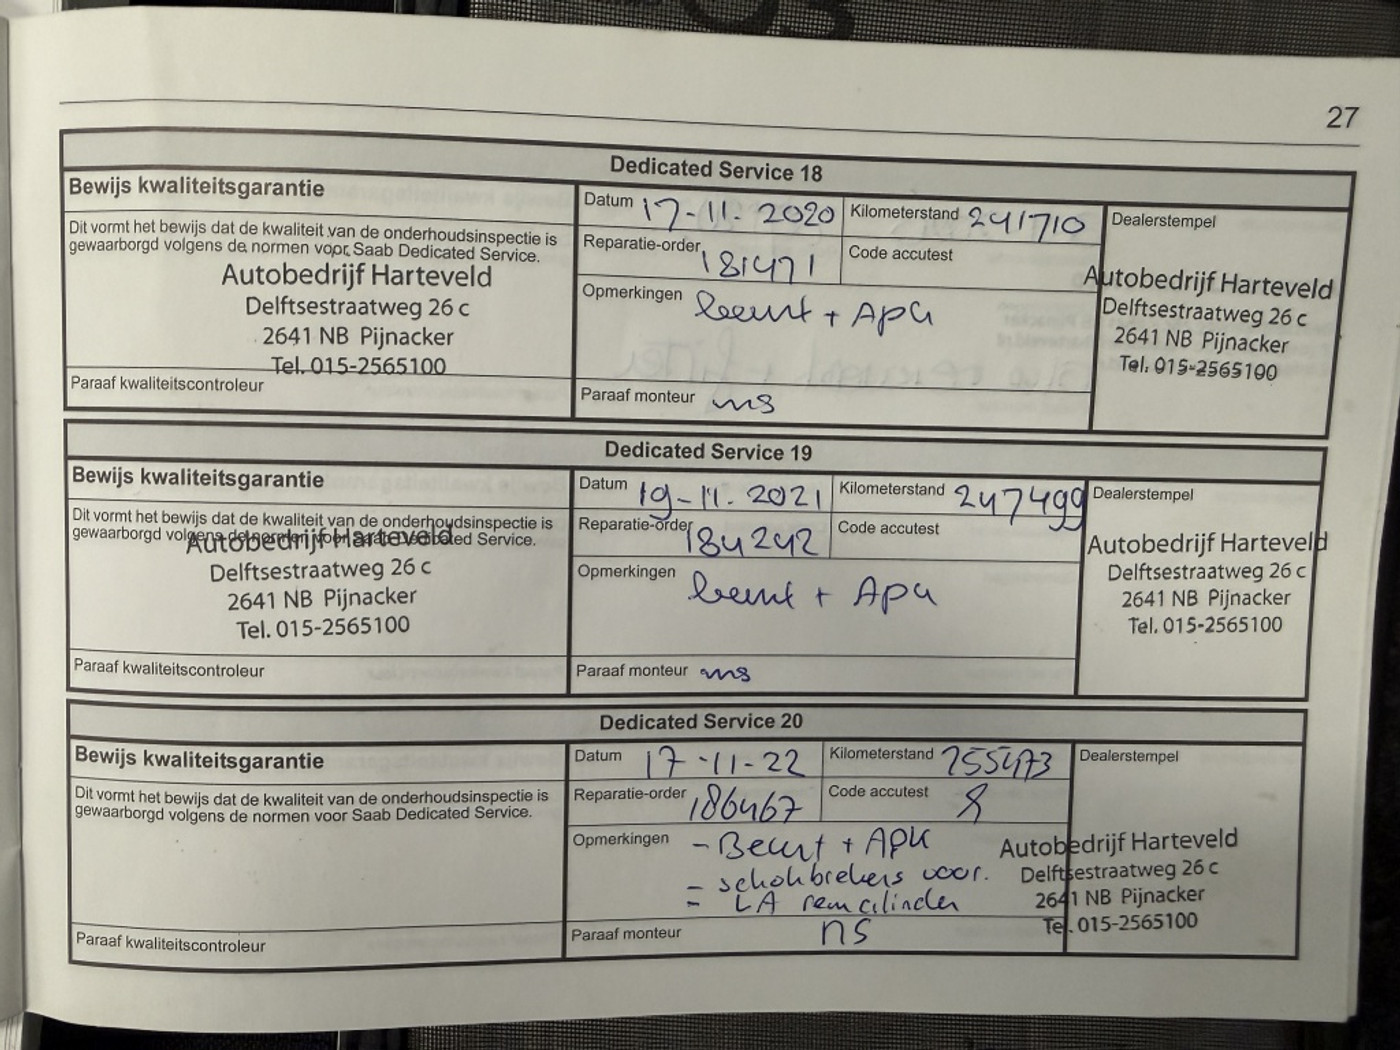 27
Dedicated Service 18
Bewijs kwaliteitsgarantie
Dit vormt het bewijs dat de kwaliteit van de onderhoudsinspectie is
gewaarborgd volgens de normen voor Saab Dedicated Service.
Autobedrijf Harteveld
Delftsestraatweg 26 c
2641 NB Pijnacker
Tel. 015-2565100
Paraaf kwaliteitscontroleur
Datum 17-11-2020
Kilometerstand 241710
Reparatie-order 181471
Code accutest
Opmerkingen beurt + APK
Paraaf monteur ms
Dealerstempel
Autobedrijf Harteveld
Delftsestraatweg 26 c
2641 NB Pijnacker
Tel. 015-2565100
Dedicated Service 19
Bewijs kwaliteitsgarantie
Dit vormt het bewijs dat de kwaliteit van de onderhoudsinspectie is
gewaarborgd volgens de normen voor Saab Dedicated Service.
Autobedrijf Harteveld
Delftsestraatweg 26 c
2641 NB Pijnacker
Tel. 015-2565100
Paraaf kwaliteitscontroleur
Datum 19-11-2021
Kilometerstand 247499
Reparatie-order 184242
Code accutest
Opmerkingen beurt + APK
Paraaf monteur ms
Dealerstempel
Autobedrijf Harteveld
Delftsestraatweg 26 c
2641 NB Pijnacker
Tel. 015-2565100
Dedicated Service 20
Bewijs kwaliteitsgarantie
Dit vormt het bewijs dat de kwaliteit van de onderhoudsinspectie is
gewaarborgd volgens de normen voor Saab Dedicated Service.
Paraaf kwaliteitscontroleur
Datum 17-11-22
Kilometerstand 255473
Reparatie-order 186467
Code accutest
Opmerkingen - Beurt + APK
- schokbrekers voor.
- LA remcilinder
Paraaf monteur ns
Dealerstempel
Autobedrijf Harteveld
Delftsestraatweg 26 c
2641 NB Pijnacker
Tel. 015-2565100